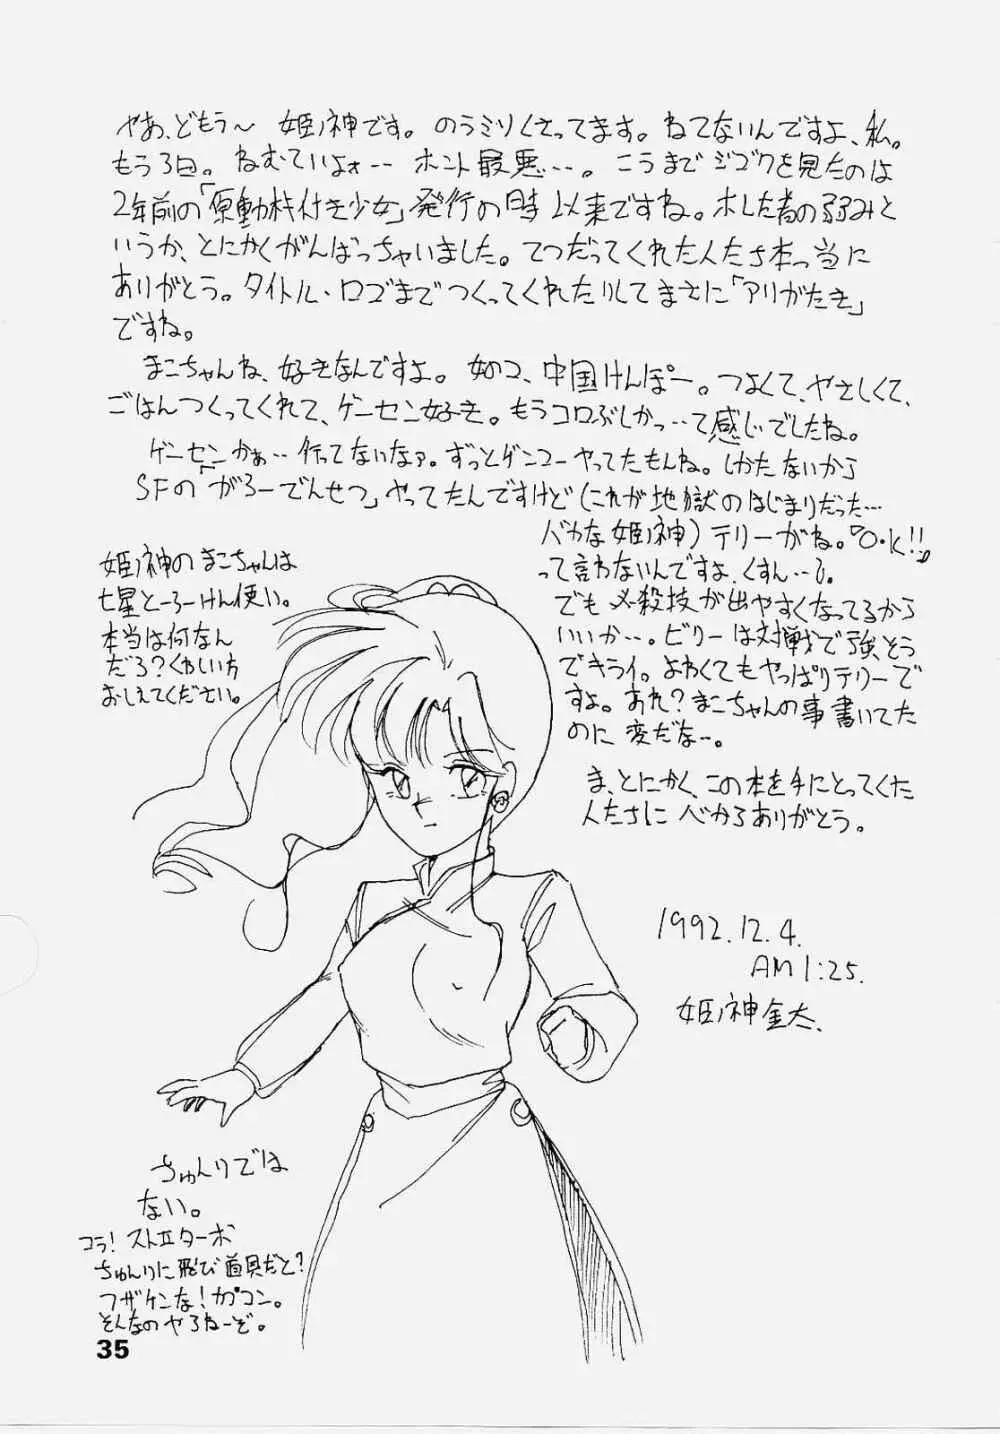 やあ、どもう〜 姫ノ神です。のうミソくさってます。ねてないんですよ、私。
もう3日。ねむていよォ‥‥ ホント最悪‥‥。こうまでジゴクを見たのは
2年前の「原動機付き少女」発行の時以来ですね。ホレた者の弱みと
いうか、とにかくがんばっちゃいました。てつだってくれた人たち本っ当に
ありがとう。タイトル・ロゴまでつくってくれたりしてまさに「アリがたき」
ですね。
まこちゃんね、好きなんですよ。女のコ、中国けんぽー。つよくて、やさしくて、
ごはんつくってくれて、ゲーセン好き。もうコロぶしかっ‥‥て感じでしたね。
ゲーセンかぁ‥‥行ってないなァ。ずっとゲンコーやってたもんね。しかたないから
SFの「がろーでんせつ」やってたんですけど(これが地獄のはじまりだった‥‥
バカな姫ノ神)テリーがね。『O・K!!』
って言わないんですよ、くすん‥‥。
でも必殺技が出やすくなってるから
いいか‥‥。ビリーは対戦で強そう
でキライ。よわくてもやっぱりテリーで
すよ。あれ?まこちゃんの事書いてた
のに変だな‥‥。
ま、とにかく、この本を手にとってくた
人たちに心からありがとう。
1992.12.4.
AM1:25.
姫ノ神金太.
姫ノ神のまこちゃんは
七星とーろーけん使い。
本当は何なん
だろ?くわしい方
おしえてください。
ちゅんりでは
ない。
コラ!ストIIターボ
ちゅんりに飛び道具だと?
フザケンな!カプコン。
そんなのやろねーぞ。
35